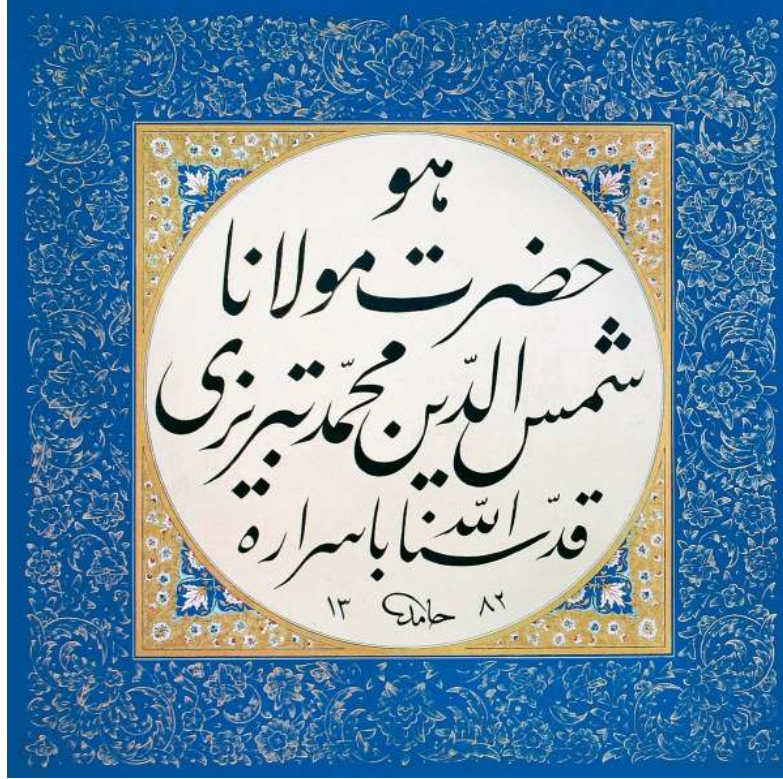 هو
حضرت مولانا
شمس الدّين محمّد تبريزى
قدّسنا اللّه باسراره
١٣ حامد ٨٢